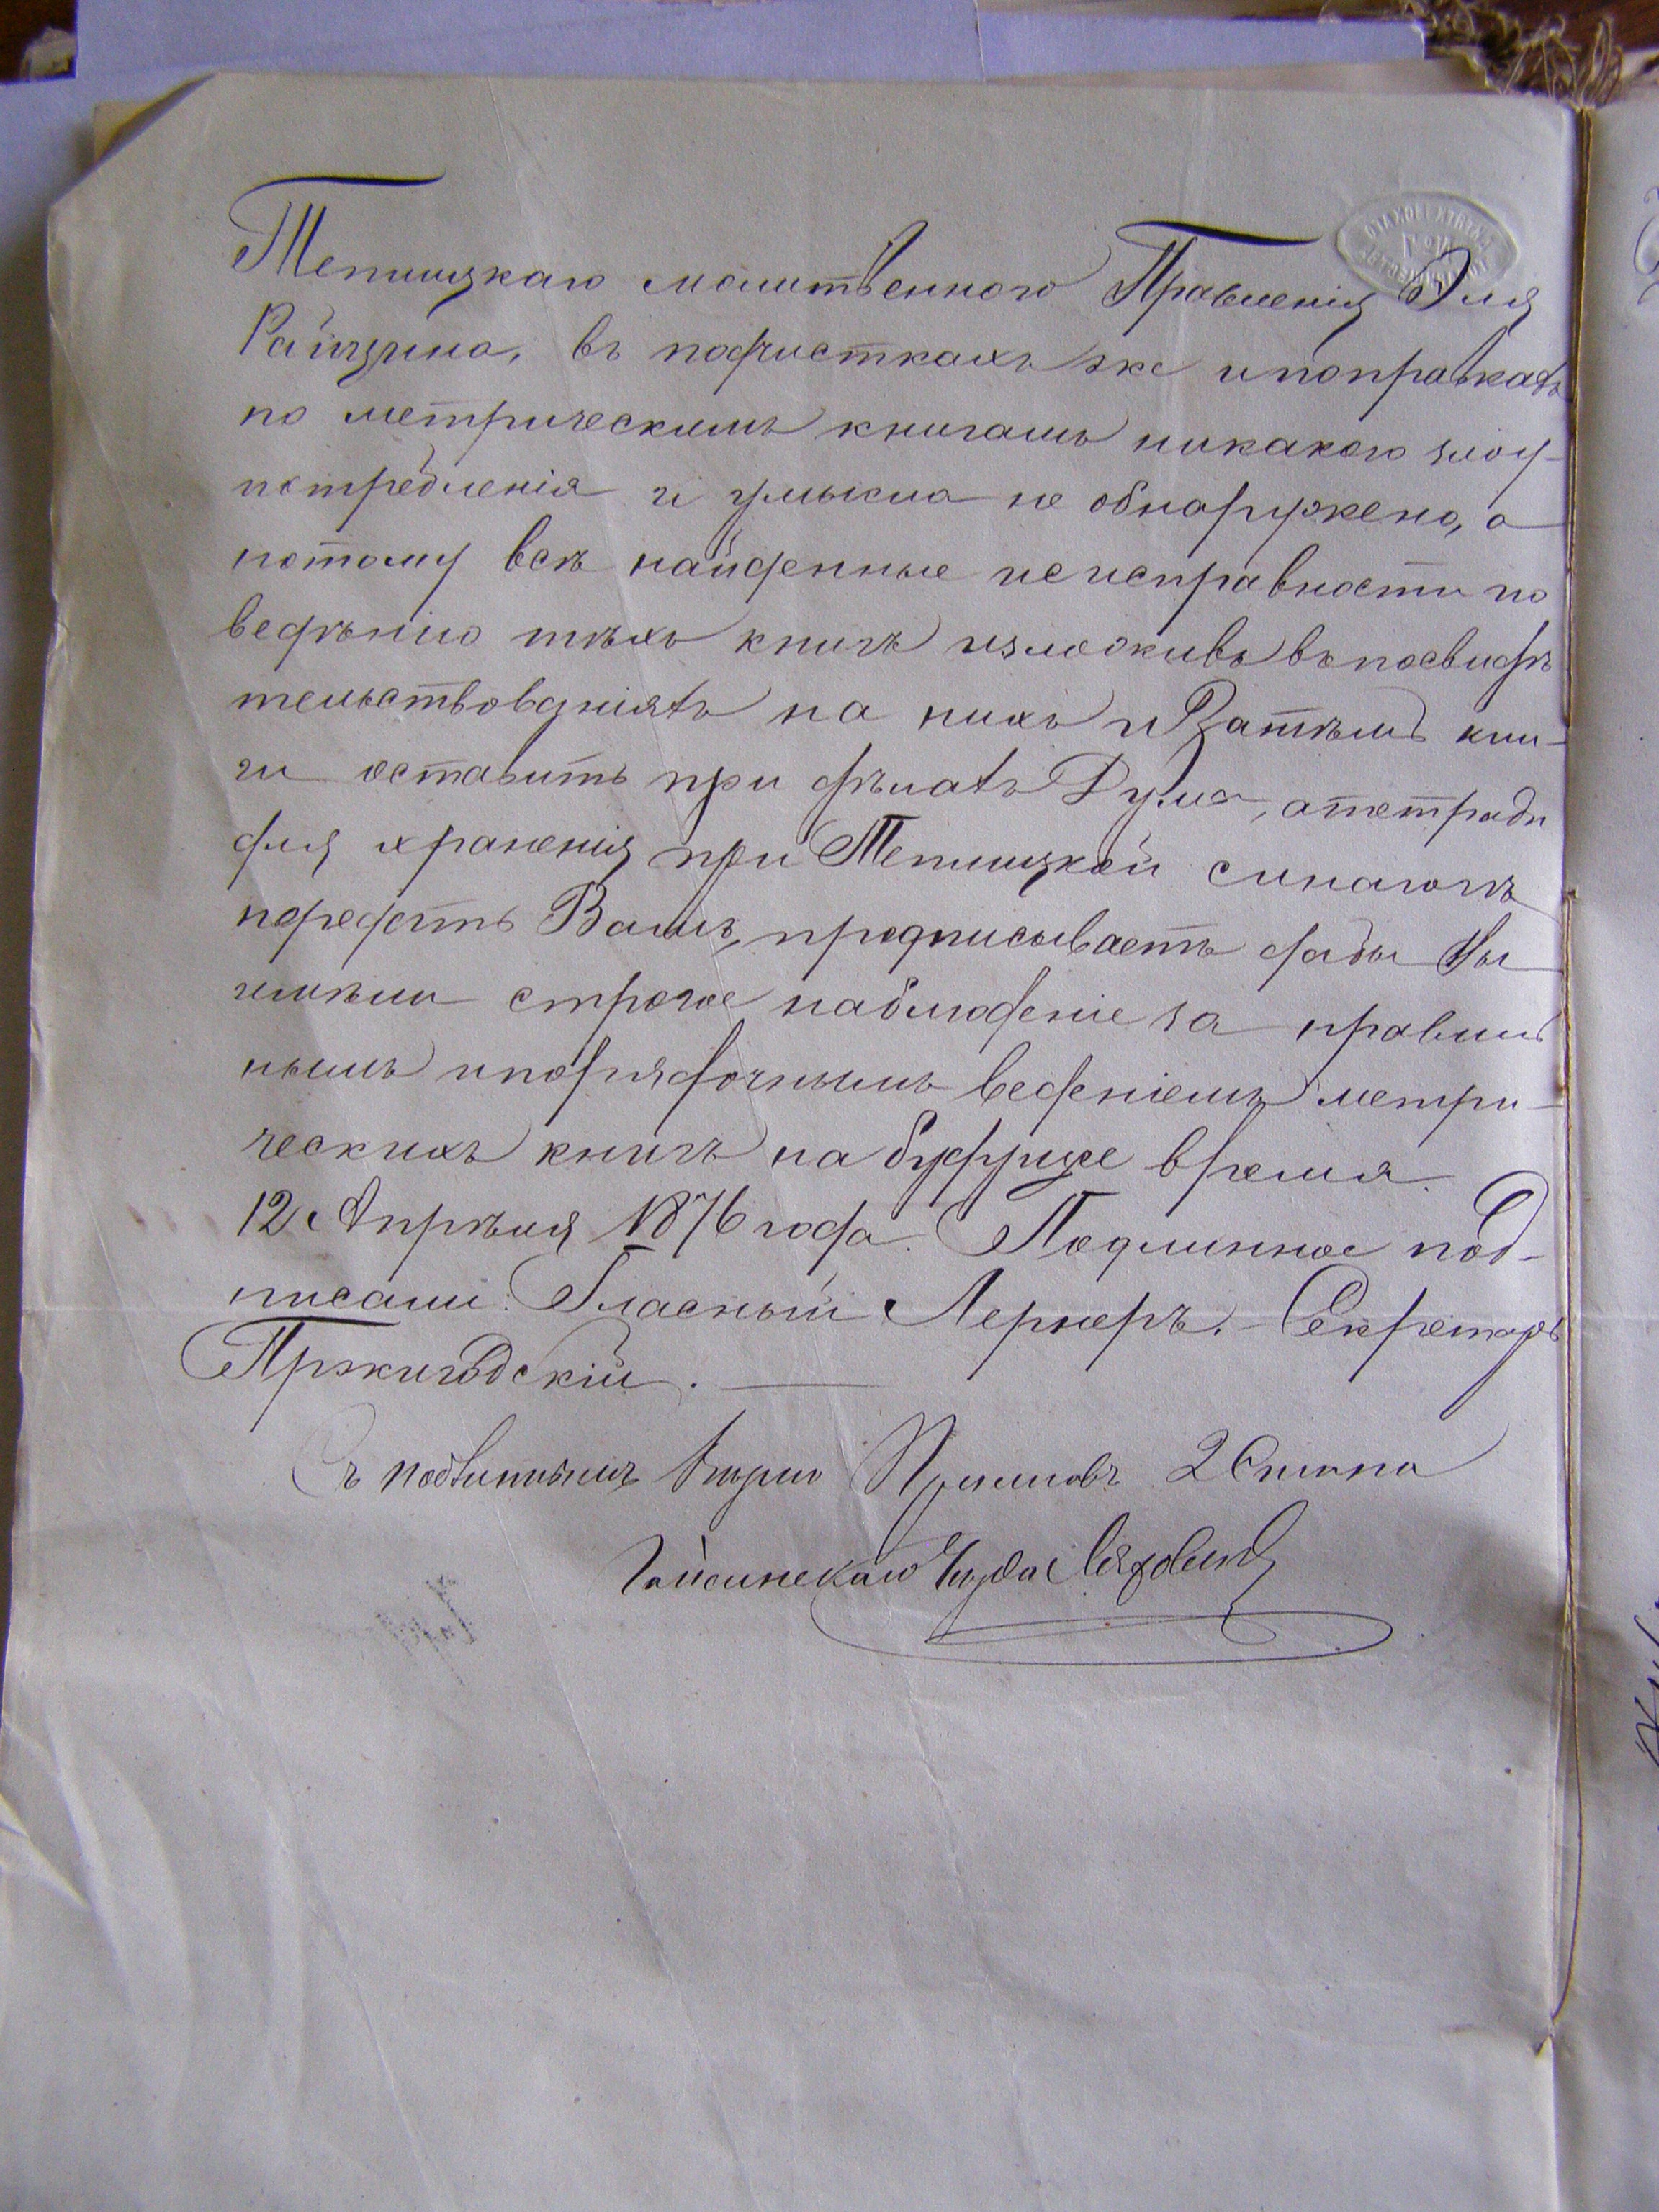 Теплицкаго молитвенного Правленія Эля
Райцина, въ подчисткахъ же и поправкахъ
по метрическимъ книгамъ никакого злоу-
потребленія и умысла не обнаружено, а
потому всѣ найденные неисправности по
веденію тѣхъ книгъ изложивъ въ посвидѣ
тельствованіяхъ на нихъ и Затѣмъ кни-
ги оставить при дѣлахъ Думы, а тетради
для храненія при Теплицкой синагогѣ
передать Вамъ, предписываетъ дабы Вы
имѣли строгое наблюденіе за правиль
нымъ и порядочнымъ веденіемъ метри-
ческихъ книгъ на будуще время.
12 Апрѣля 1876 года. Подлинное под-
писали: Гласный Лернеръ. – Секретарь
Пржигодскій.
Съ подлиннымъ вѣрно 2
Гайсинскаго